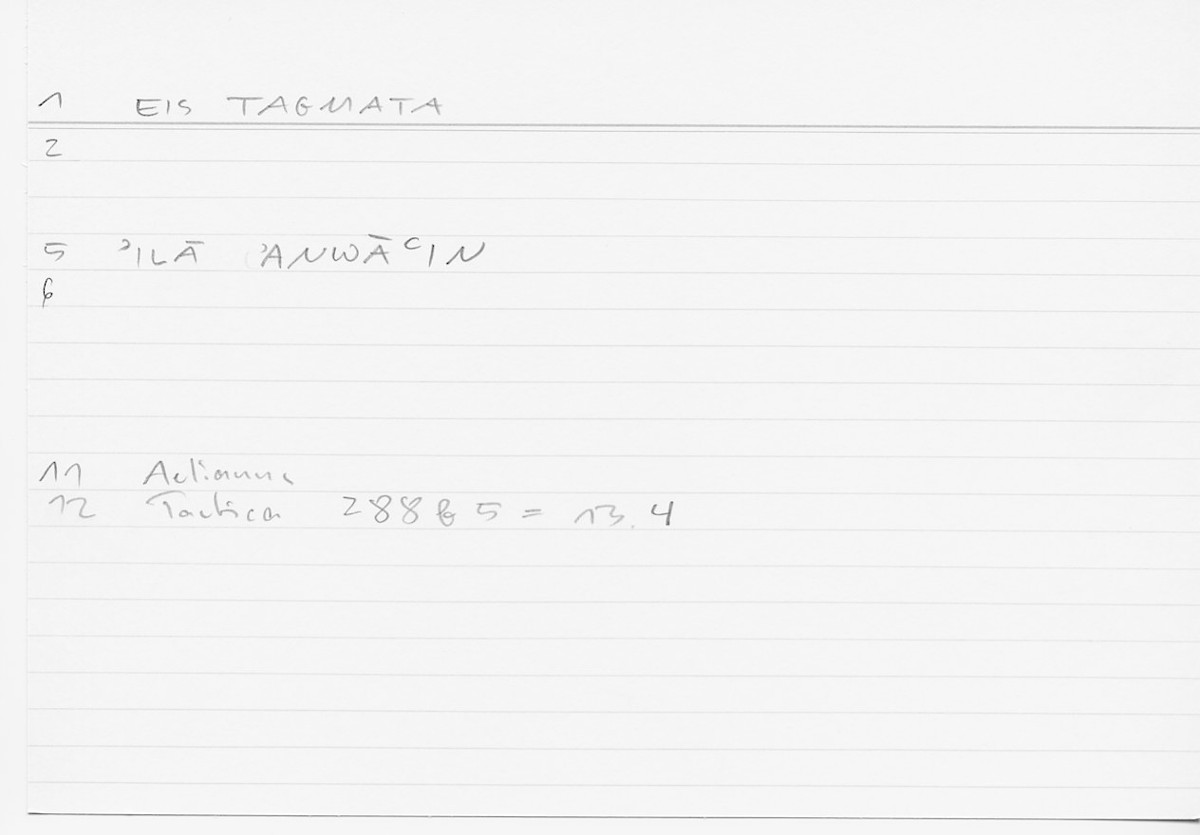 1 EIS TAGMATA
2
5 ʾILĀ ʾANWĀʿIN
6
11 Aelianus
12 Tactica 288 b 5 = 13.4